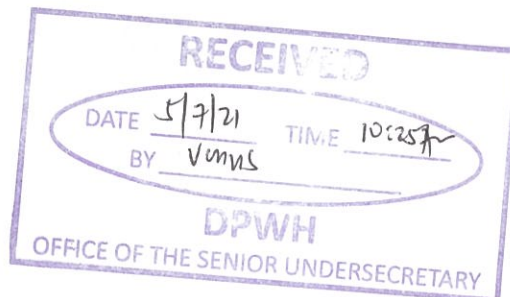 RECEIVED
DATE 5/7/21 TIME 10:25 Am
BY Venus
DPWH
OFFICE OF THE SENIOR UNDERSECRETARY